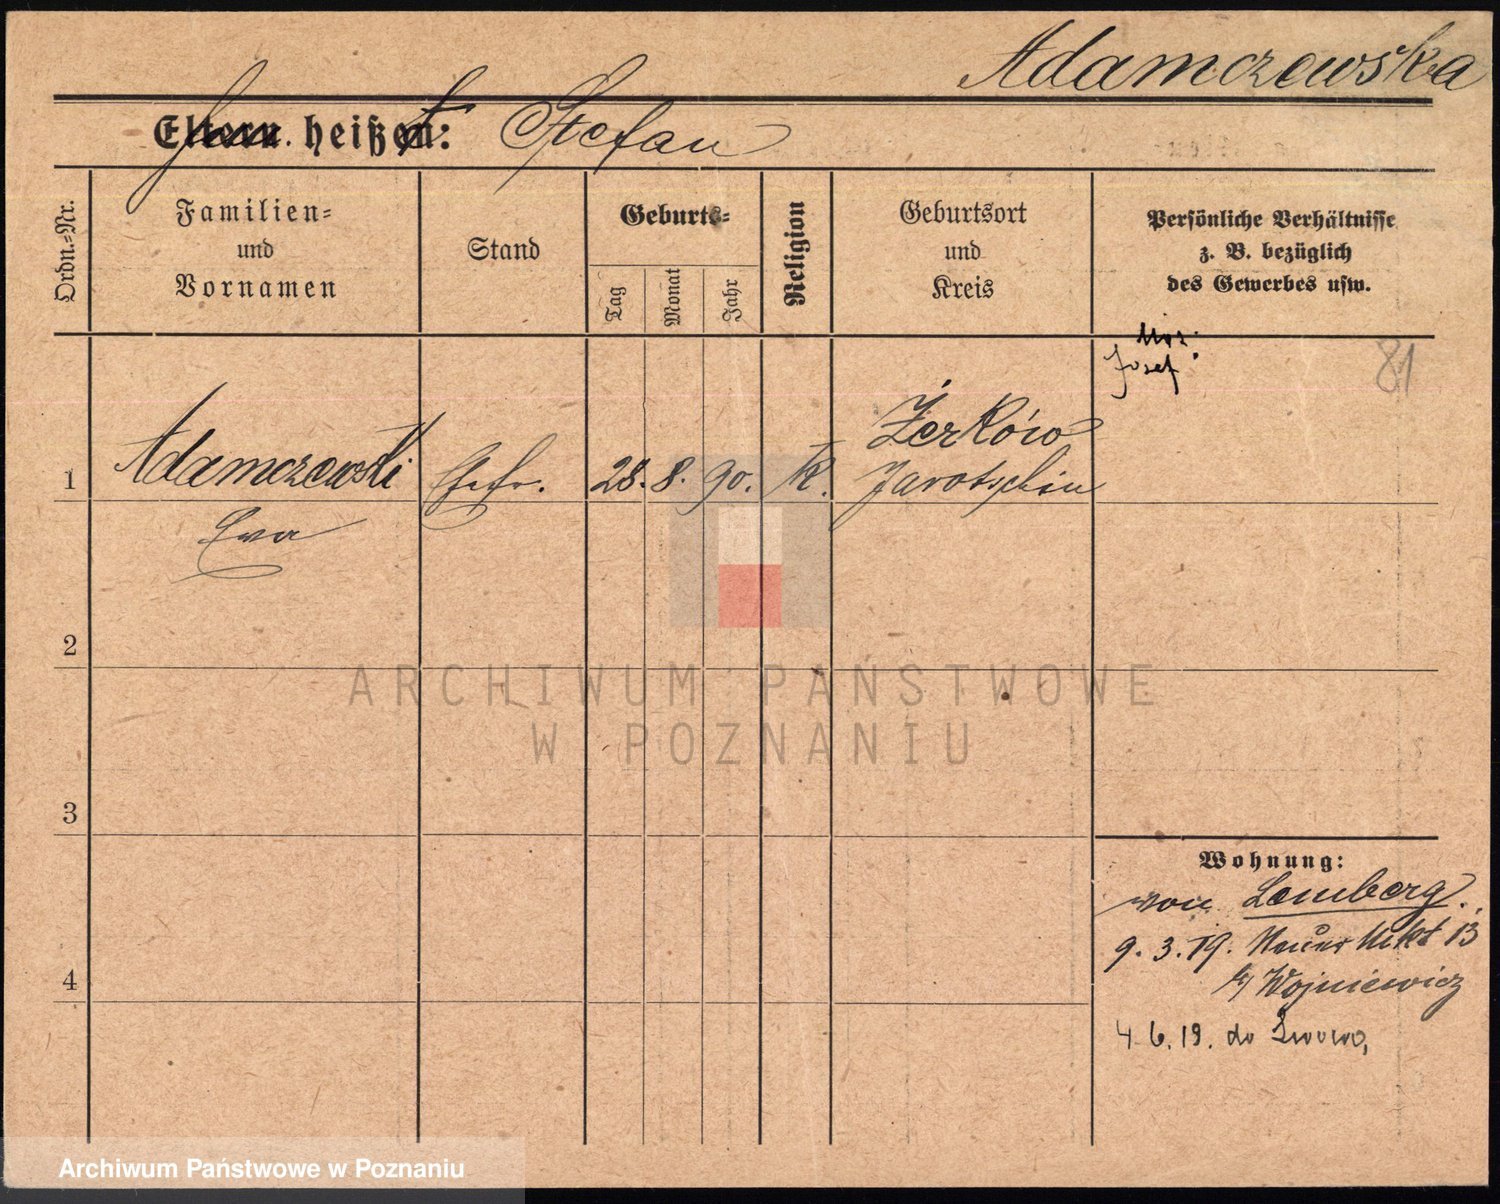 Adamczewska
Eltern heißen: Stefan
Ordn.-Nr.
Familien-
und
Vornamen
Stand
Geburts-
Tag
Monat
Jahr
Religion
Geburtsort
und
Kreis
Persönliche Verhältnisse
z. B. bezüglich
des Gewerbes usw.
Josef
81
1
Adamczewski
Eva
Ehefr.
28. 8. 90.
K.
Żerków
Jarotschin
2
3
4
Wohnung:
von Lemberg.
9. 3. 19. Neuer Mkt 13
b/ Wojniewicz
4. 6. 19. do Lwowa,
ARCHIWUM PAŃSTWOWE
W POZNANIU
Archiwum Państwowe w Poznaniu